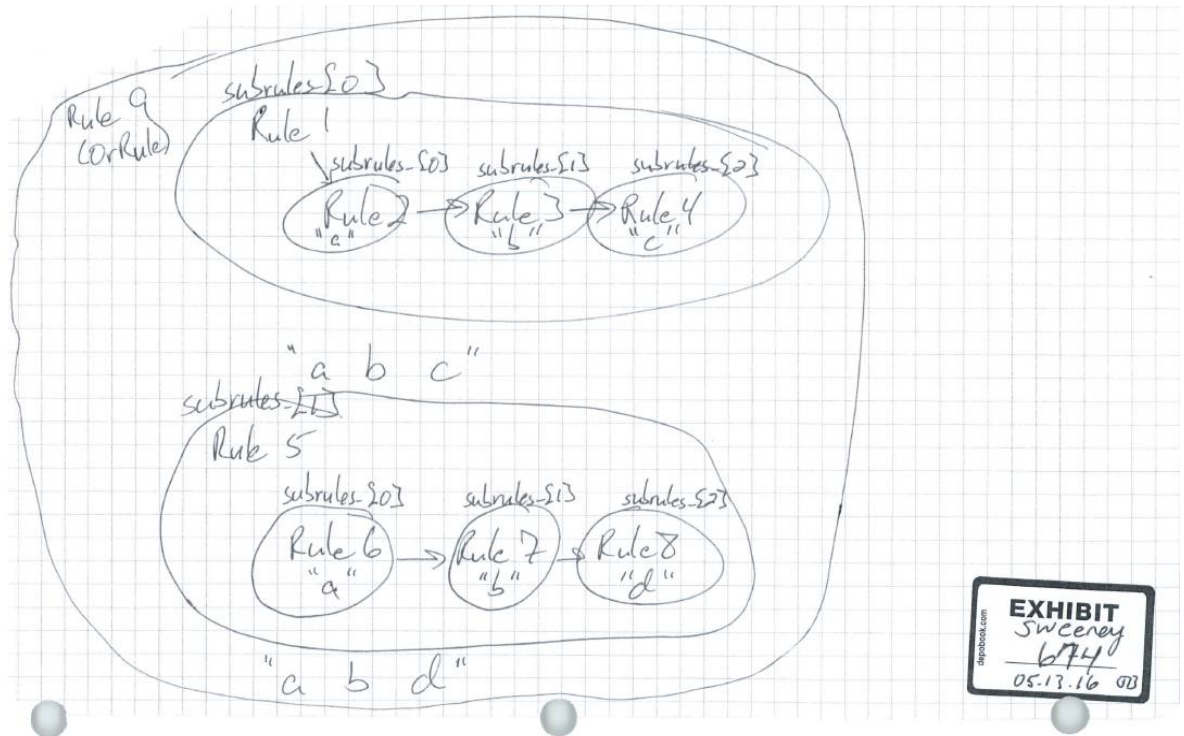 Rule 9
(OrRule)
subrules_[0]
Rule 1
subrules_[0] subrules_[1] subrules_[2]
Rule 2 Rule 3 Rule 4
"a" "b" "c"
"a b c"
subrules_[1]
Rule 5
subrules_[0] subrules_[1] subrules_[2]
Rule 6 Rule 7 Rule 8
"a" "b" "d"
"a b d"
depobook.com
EXHIBIT
Sweeney
674
05.13.16